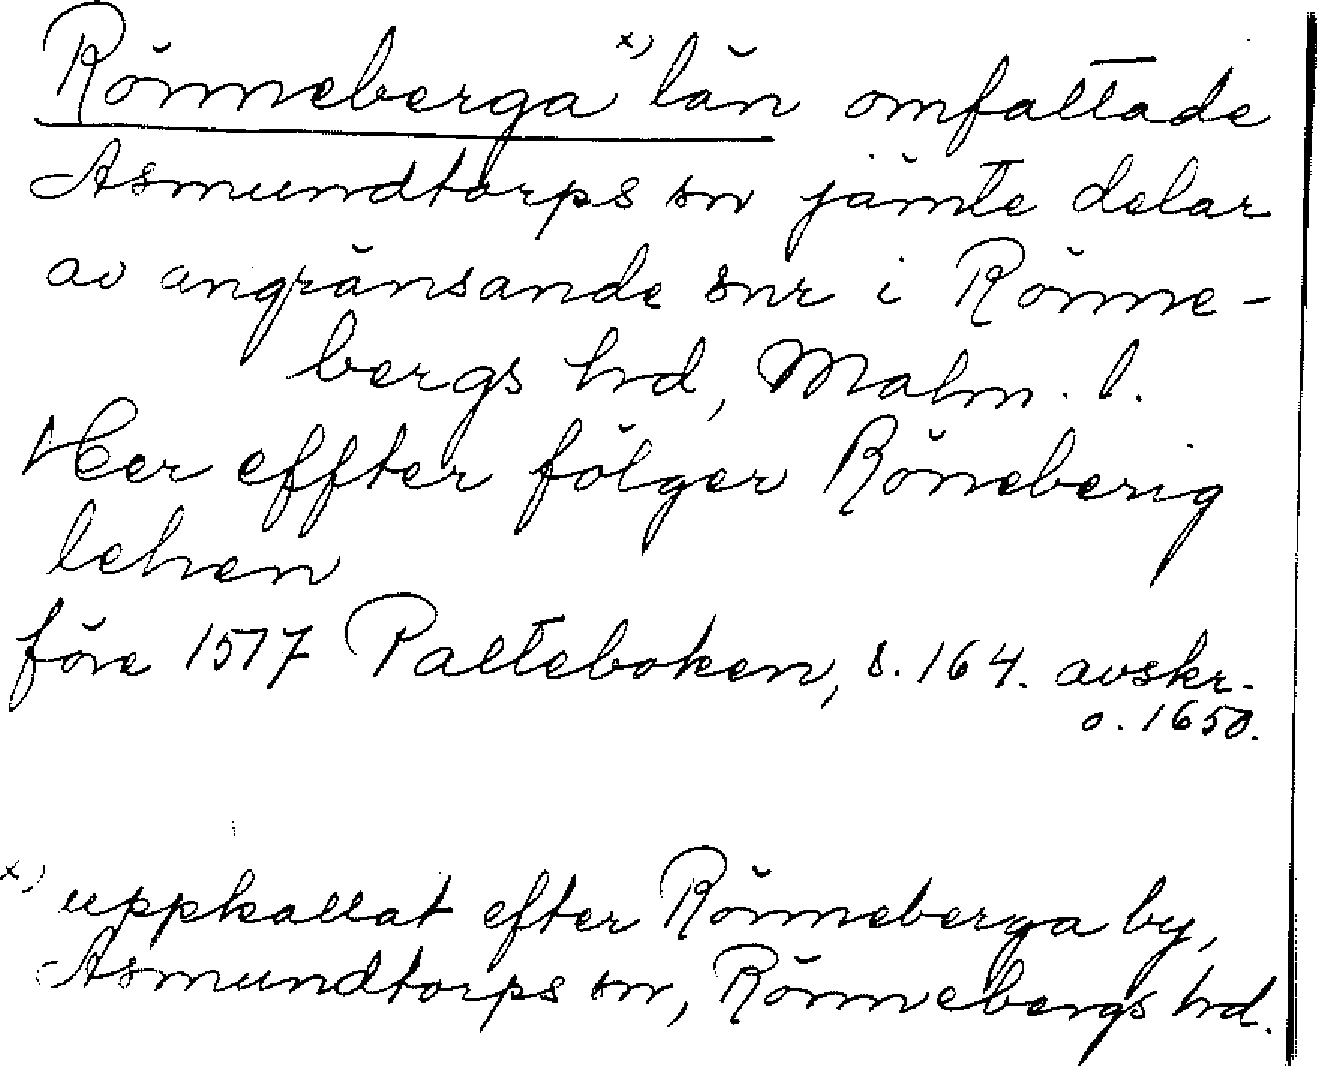 Rönneberga x) län omfattade
Asmundtorps sn jämte delar
av angränsande snr i Rönne-
bergs hrd, Malm. l.
Her effter fölger Röneberig
lehen
före 1577 Palteboken, s. 164. avskr.
o. 1650.
x) uppkallat efter Rönneberga by,
Asmundtorps sn, Rönnebergs hrd.